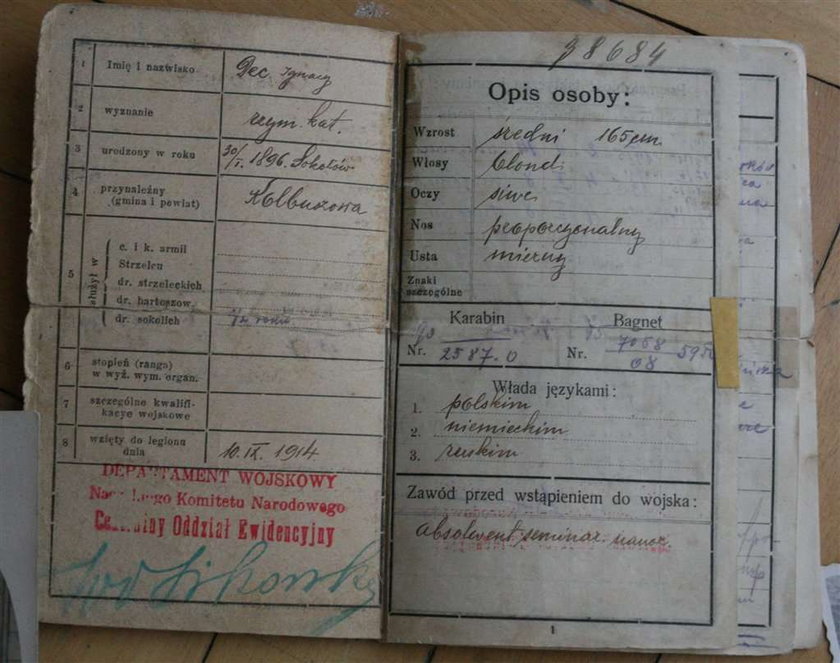 1 Imię i nazwisko Dec Ignacy
2 wyznanie rzym. kat.
3 urodzony w roku 30/V. 1896. Sokołów
4 przynależny (gmina i powiat) Kolbuszowa
5 służył w
c. i k. armii
Strzelcu
dr. strzeleckich
dr. bartoszow.
dr. sokolich 1/2 roku
6 stopień (ranga) w wyż. wym. organ.
7 szczególne kwalifi-
kacye wojskowe
8 wzięty do legionu dnia 10. IX. 1914
DEPARTAMENT WOJSKOWY
Naczelnego Komitetu Narodowego
Centralny Oddział Ewidencyjny
38684
Opis osoby:
Wzrost średni 165 cm.
Włosy blond.
Oczy siwe
Nos proporcyonalny
Usta mierny
Znaki szczególne
Karabin Bagnet
Nr. 2587.0 Nr. 7068 08
Włada językami:
1. polskim
2. niemieckim
3. ruskim
Zawód przed wstąpieniem do wojska:
absolwent seminar. naucz.
1